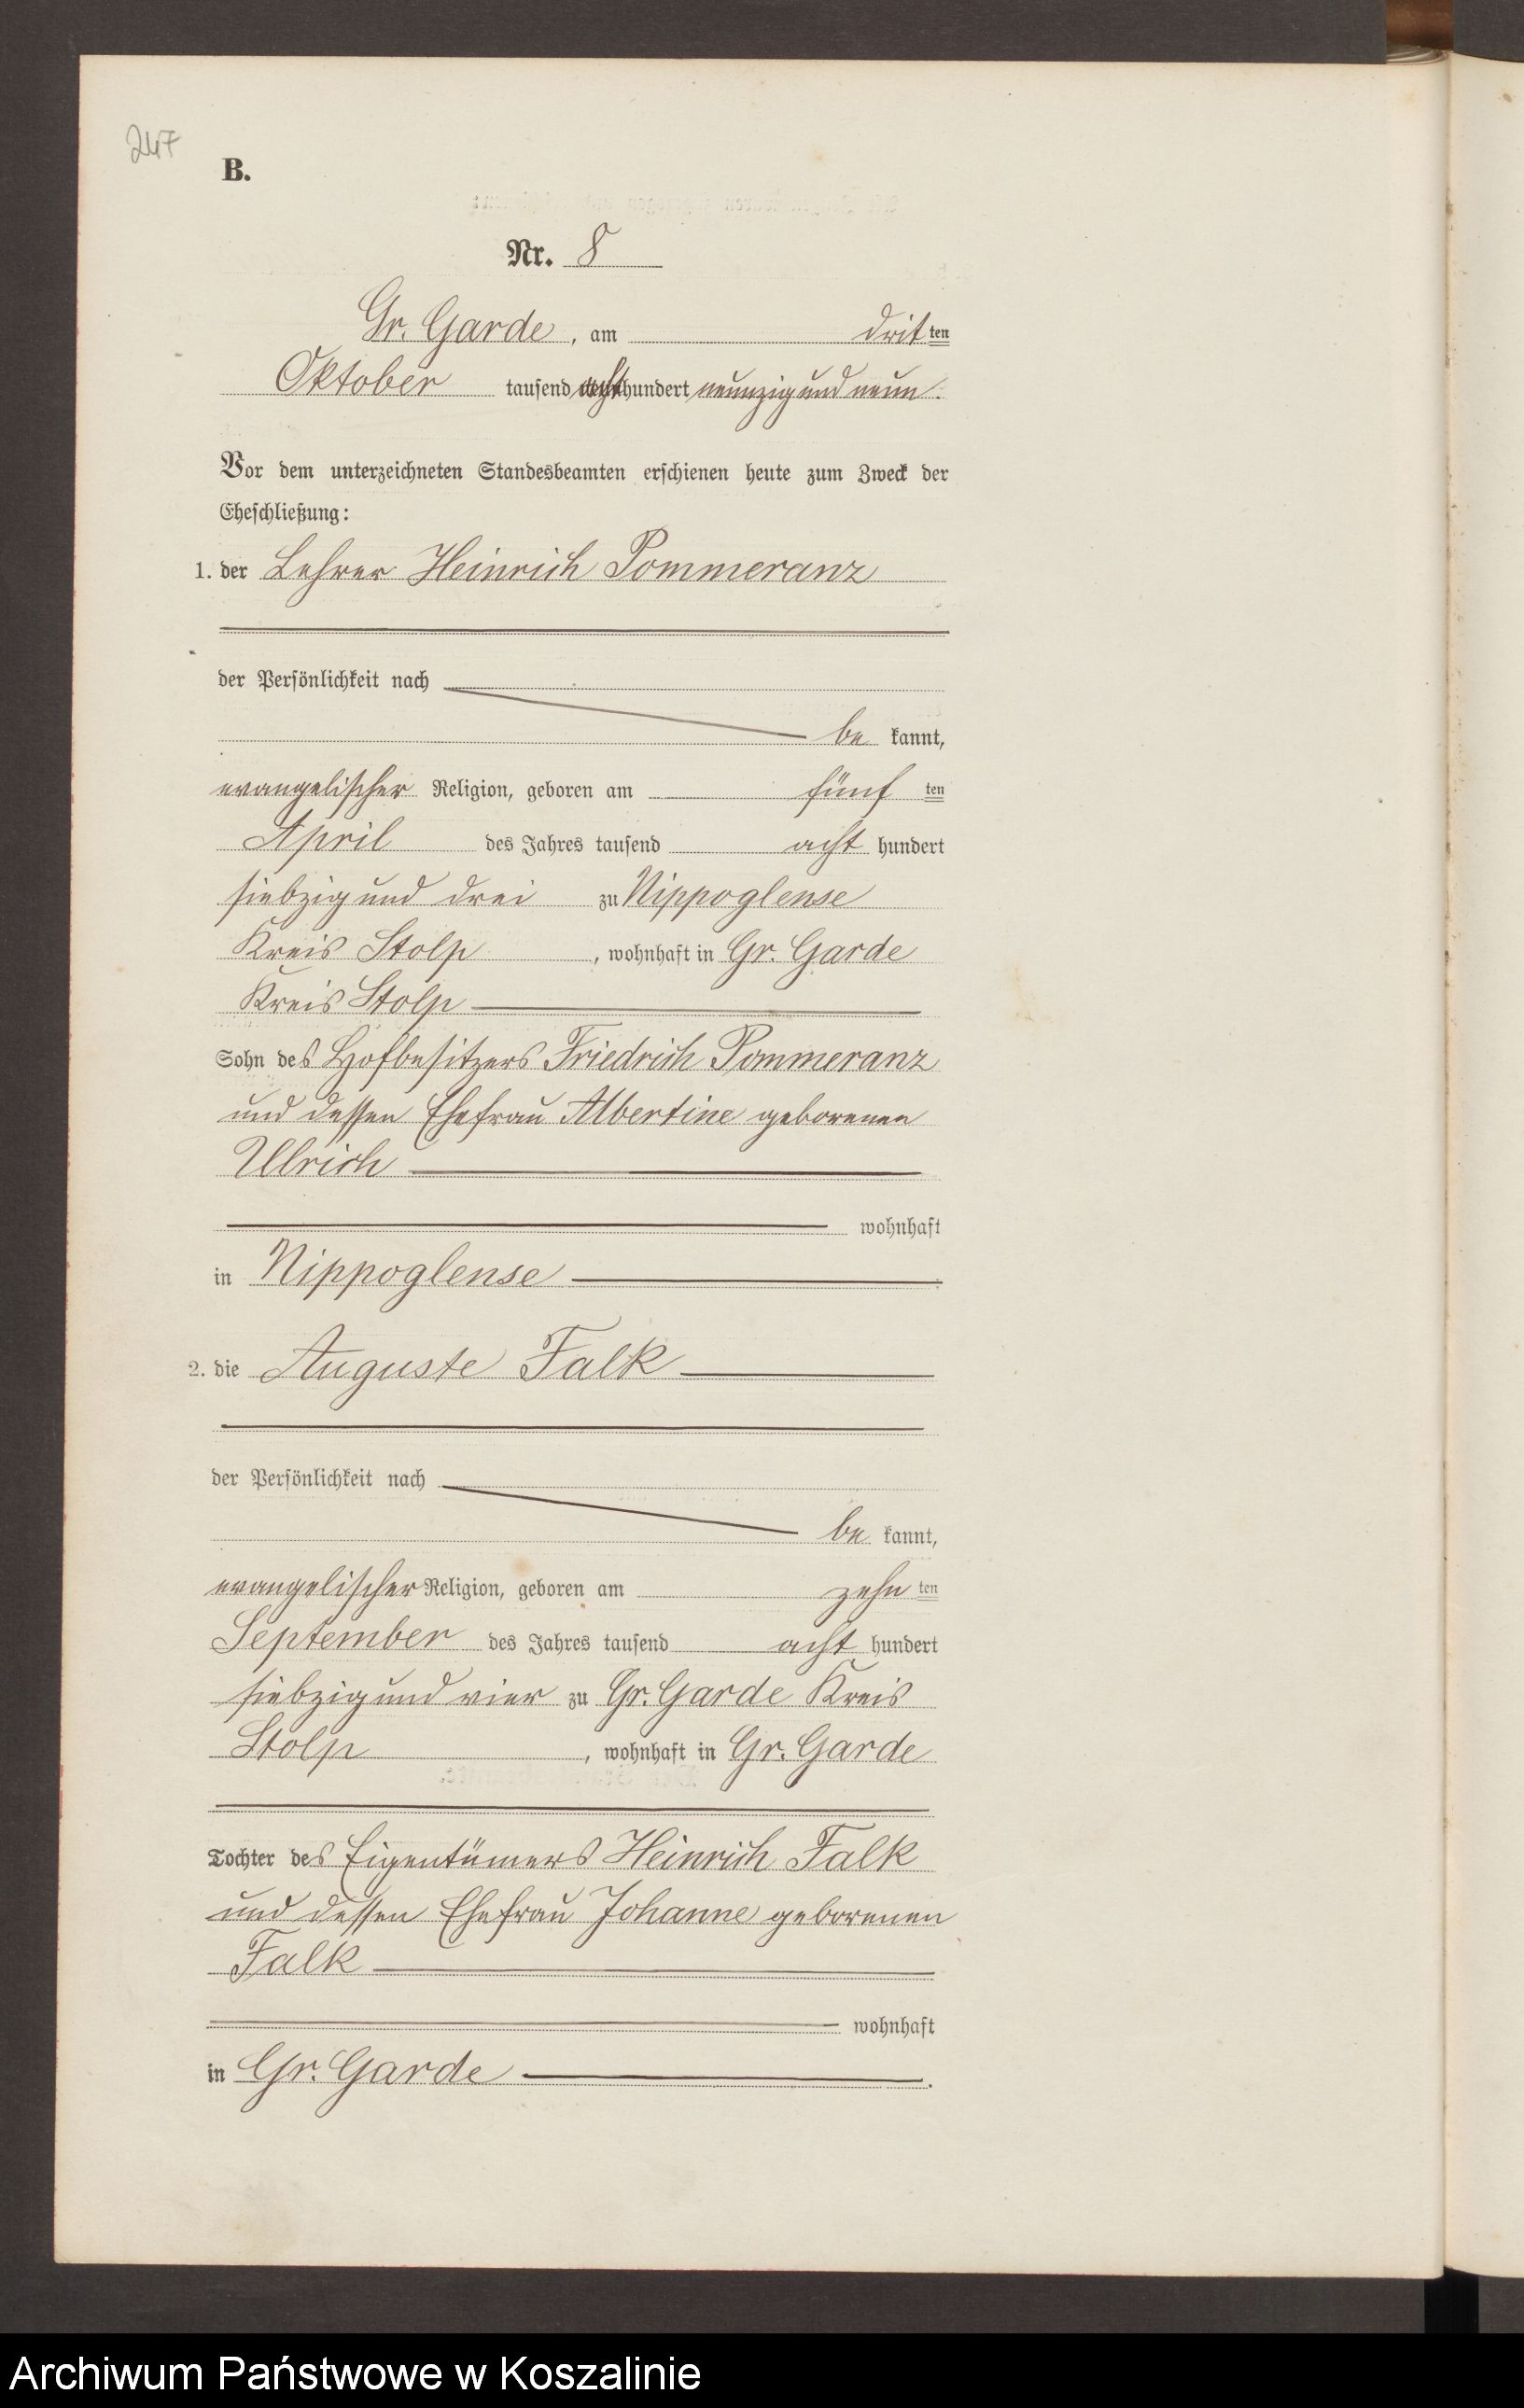 247
B.
Nr. 8
Gr. Garde, am dritten
Oktober tausend achthundert neunzig und neun.
Vor dem unterzeichneten Standesbeamten erschienen heute zum Zweck der
Eheschließung:
1. der Lehrer Heinrich Pommeranz
der Persönlichkeit nach
be kannt,
evangelischer Religion, geboren am fünf ten
April des Jahres tausend acht hundert
siebzig und drei zu Nippoglense
Kreis Stolp, wohnhaft in Gr. Garde
Kreis Stolp
Sohn des Hofbesitzers Friedrich Pommeranz
und dessen Ehefrau Albertine geborenen
Ulrich
wohnhaft
in Nippoglense
2. die Auguste Falk
der Persönlichkeit nach
be kannt,
evangelischer Religion, geboren am zehn ten
September des Jahres tausend acht hundert
siebzig und vier zu Gr. Garde Kreis
Stolp, wohnhaft in Gr. Garde
Tochter des Eigentümers Heinrich Falk
und dessen Ehefrau Johanne geborenen
Falk
wohnhaft
in Gr. Garde.
Archiwum Państwowe w Koszalinie